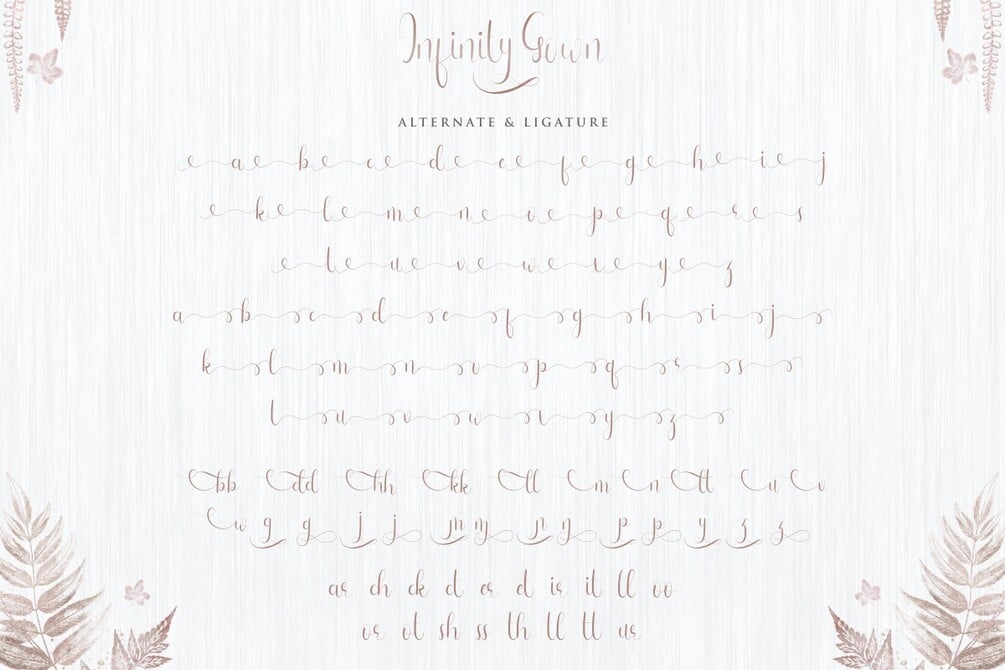 Infinity Gown
ALTERNATE & LIGATURE
a b c d e f g h i j
k l m n o p q r s
t u v w x y z
a b c d e f g h i j
k l m n o p q r s
t u v w x y z
bb dd hh kk ll m n tt u v
w g g j j m m n n p p y z z
as ch ck es is it ll oo
os ot sh ss th tt us